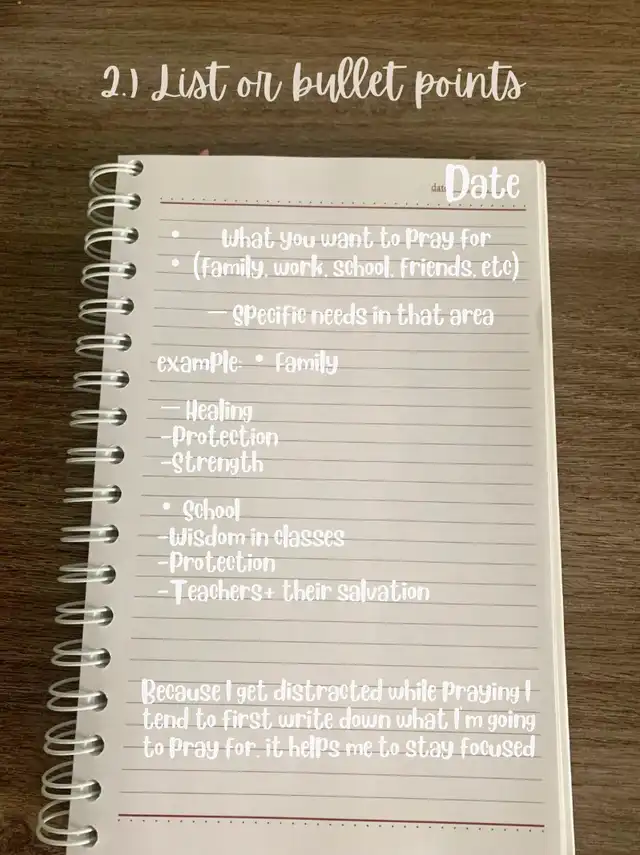 2.) List or bullet points
date
Date
• What you want to Pray for
• (family, work, school, friends, etc)
— Specific needs in that area
example: • Family
— Healing
-Protection
-Strength
• School
-Wisdom in classes
-Protection
-Teachers+ their salvation
Because I get distracted while Praying I
tend to first write down what I'm going
to Pray for. it helps me to stay focused